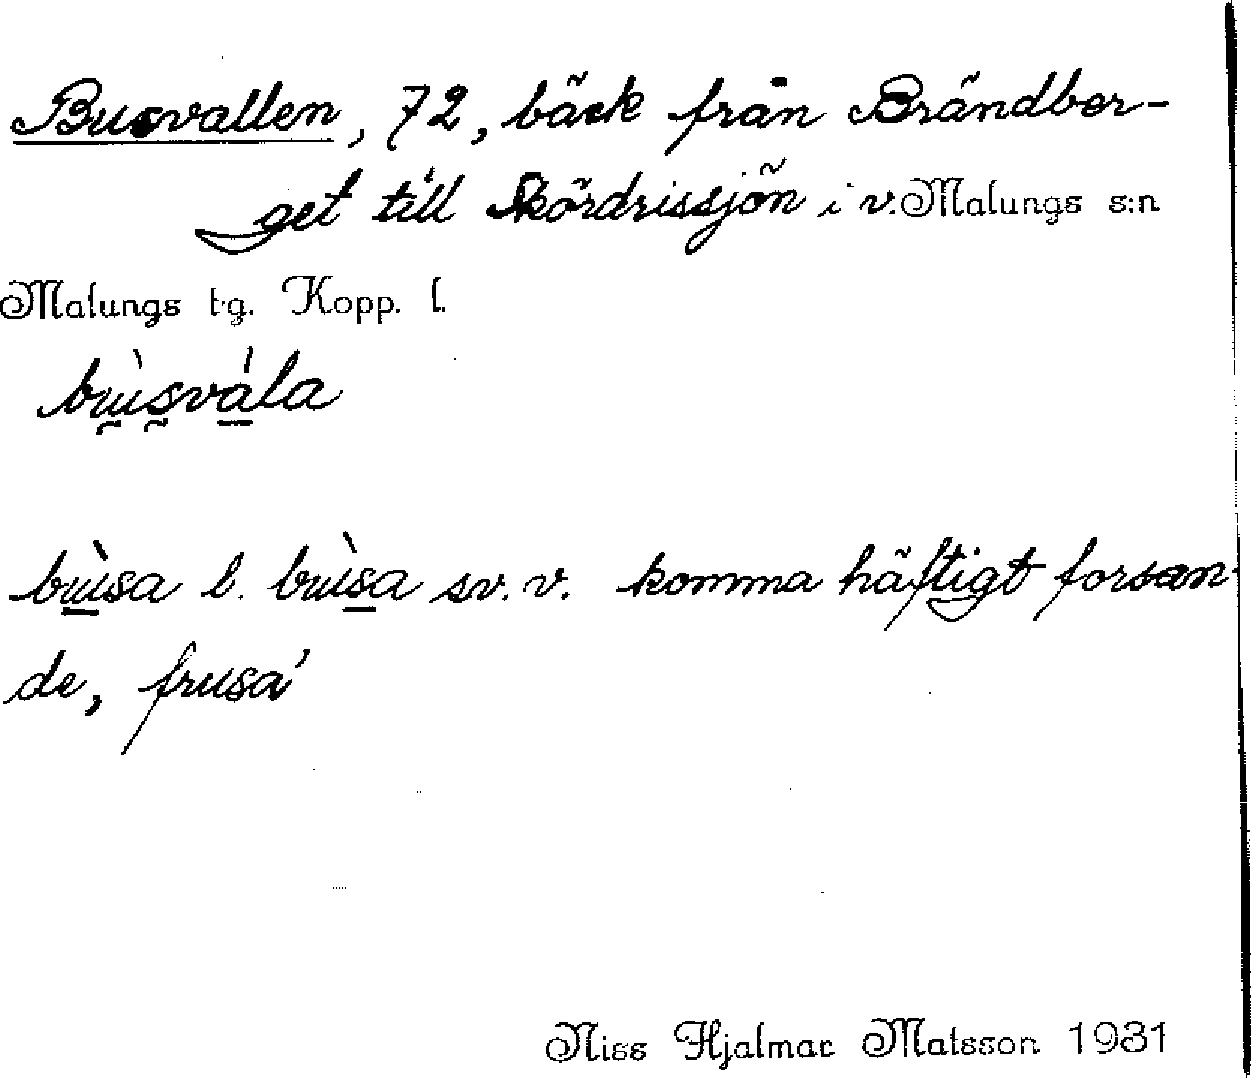 Busvallen, 72, bäck från Brändber-
get till Skördrissjön i v. Malungs s:n
Malungs tg. Kopp. l.
bùsvála
bùsa l. bùsa sv. v. komma häftigt forsan-
de, frusa'
Niss Hjalmar Matsson 1931